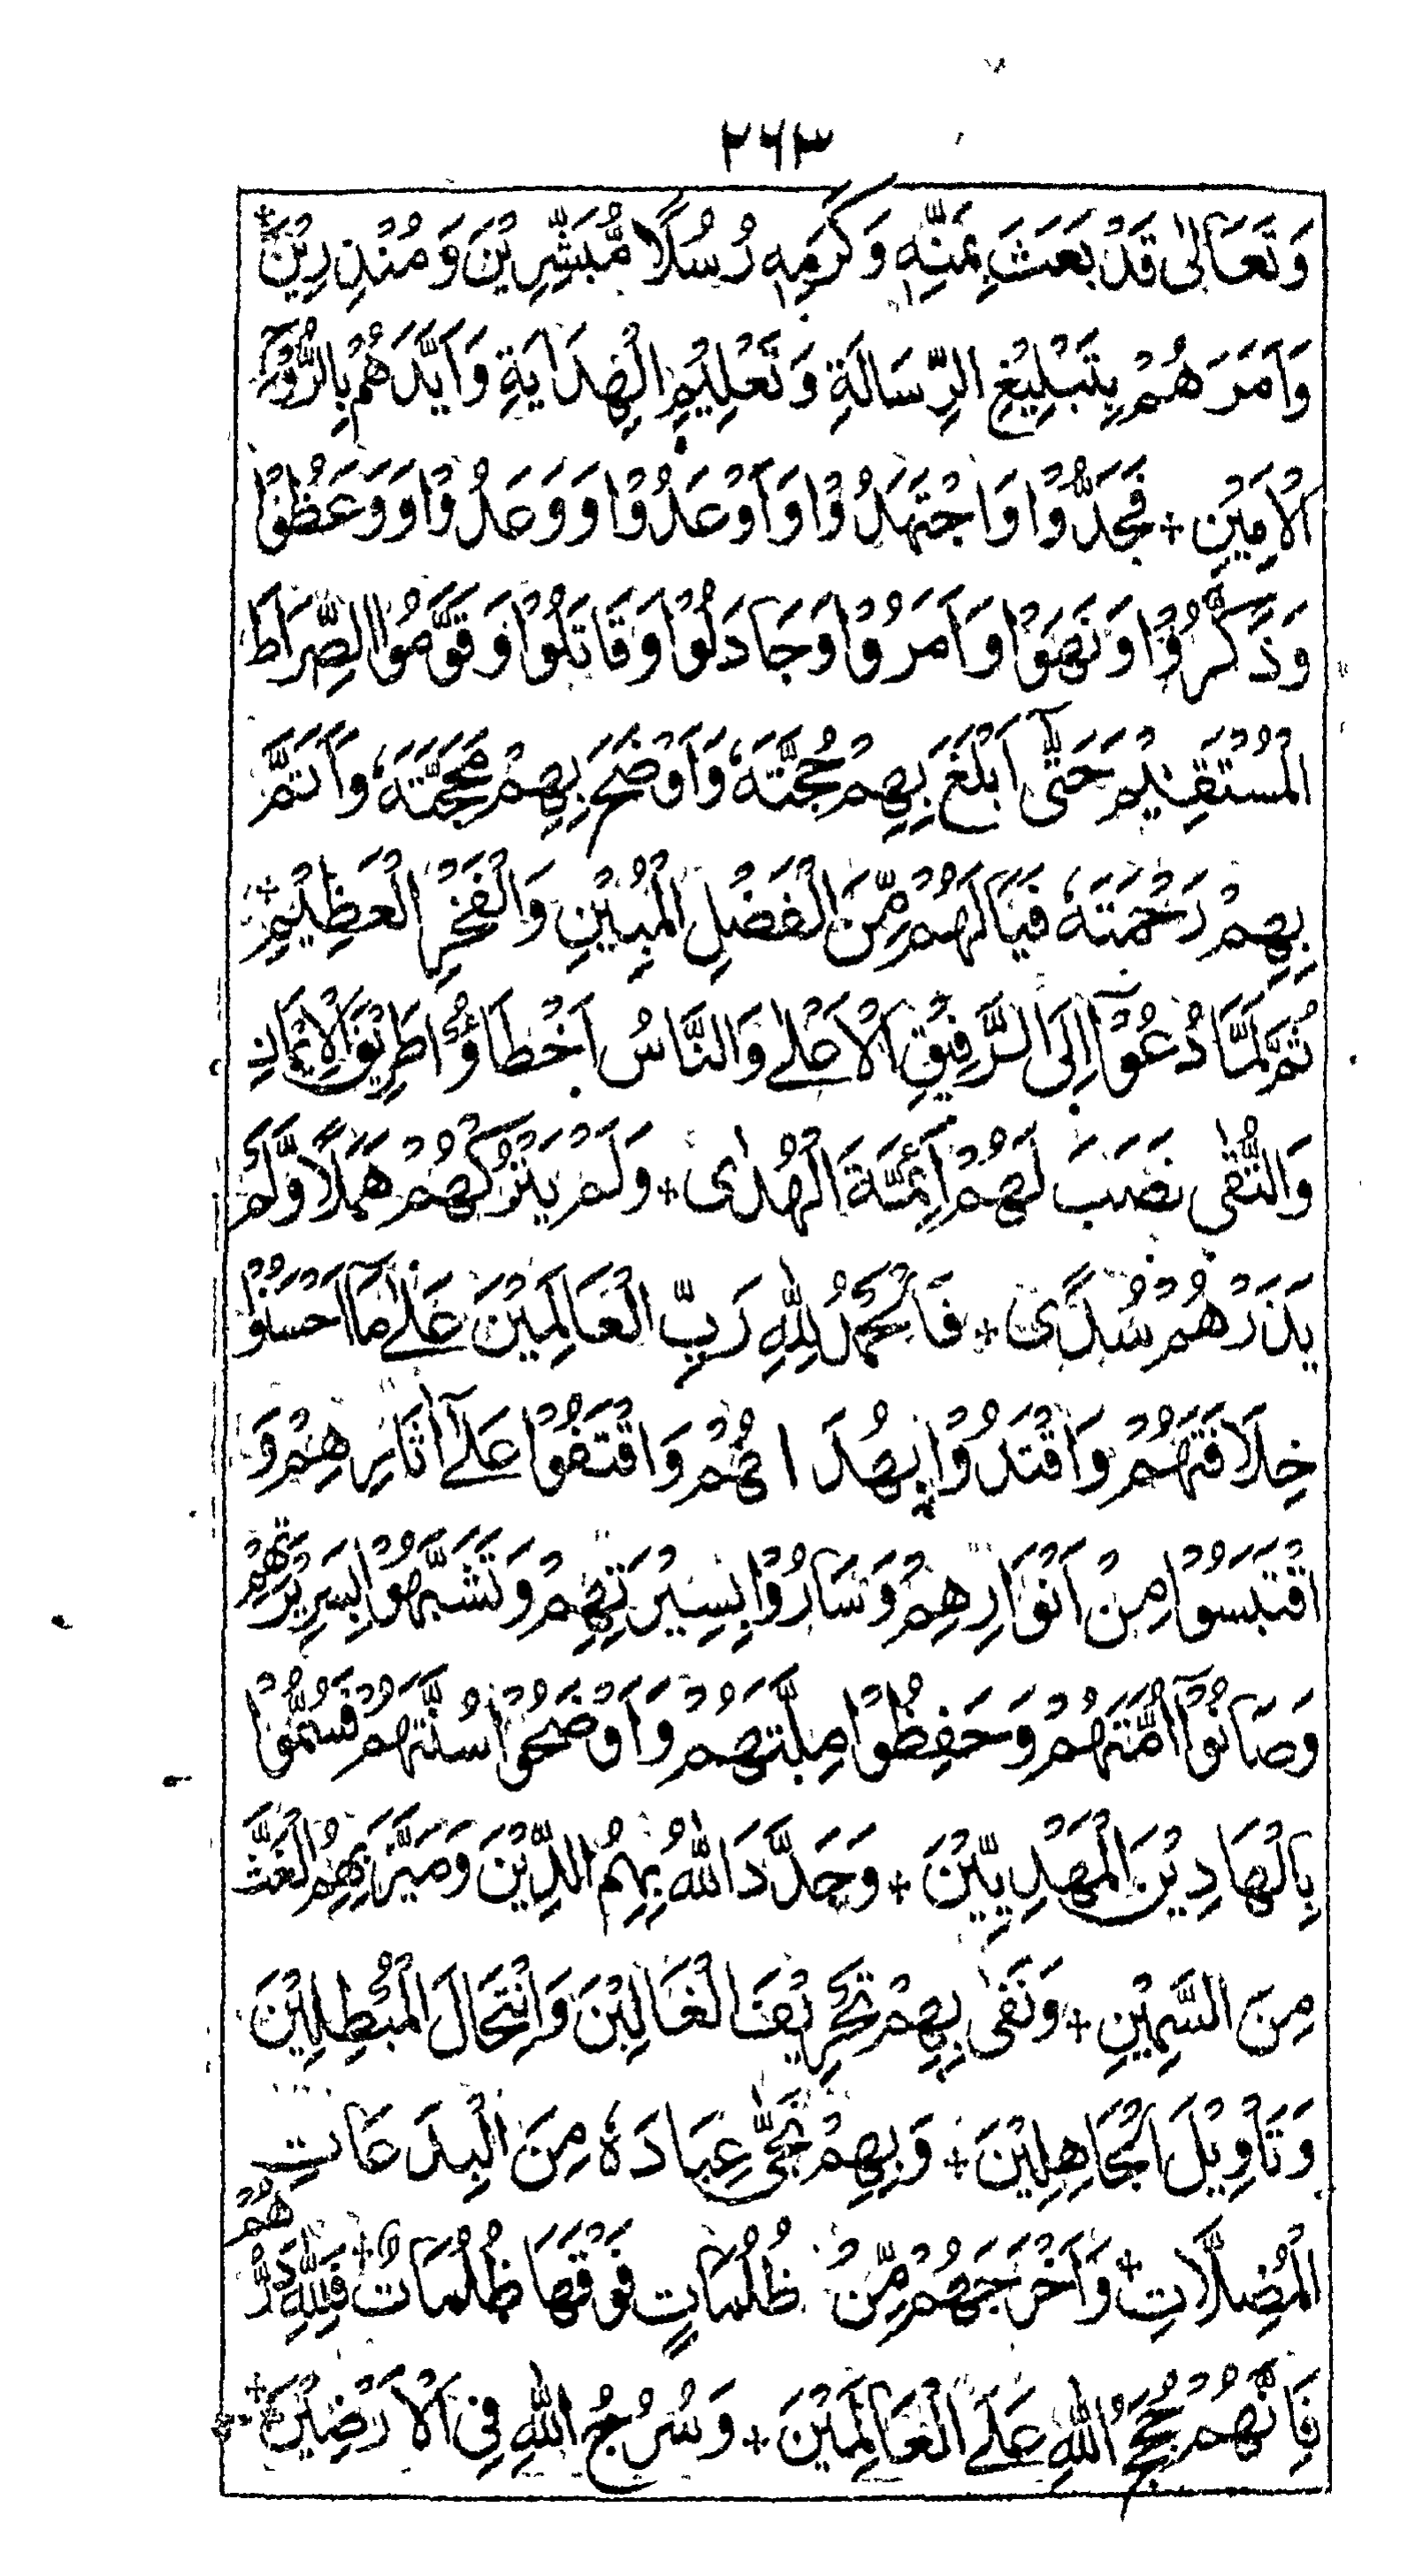 ٢٦٣
وَتَعَالٰى قَدْ بَعَثَ بِمَنِّهٖ وَكَرَمِهٖ رُسُلًا مُّبَشِّرِيْنَ وَمُنْذِرِيْنَ +
وَاَمَرَهُمْ بِتَبْلِيْغِ الرِّسَالَةِ وَتَعْلِيْمِ الْهِدَايَةِ وَاَيَّدَهُمْ بِالرُّوْحِ
الْاَمِيْنِ + فَجَدُّوْا وَاجْتَهَدُوْا وَاَوْعَدُوْا وَوَعَدُوْا وَوَعَظُوْا
وَذَكَّرُوْا وَنَهَوْا وَاَمَرُوْا وَجَادَلُوْا وَقَاتَلُوْا وَقَوَّمُوا الصِّرَاطَ
الْمُسْتَقِيْمَ حَتّٰى اَبْلَغَ بِهِمْ حُجَّتَهٗ وَاَوْضَحَ بِهِمْ مَحَجَّتَهٗ وَاَتَمَّ
بِهِمْ رَحْمَتَهٗ فَيَا لَهُمْ مِّنَ الْفَضْلِ الْمُبِيْنِ وَالْفَخْرِ الْعَظِيْمِ +
ثُمَّ لَمَّا دُعُوْۤا اِلَى الرَّفِيْقِ الْاَعْلٰے وَالنَّاسُ اَخْطَاؤُا طَرِيْقَ الْاِيْمَانِ
وَالتُّقٰى نَصَبَ لَهُمْ اَئِمَّةَ الْهُدٰى + وَلَمْ يَتْرُكْهُمْ هَمَلًا وَّلَمْ
يَذَرْهُمْ سُدًى + فَالْحَمْدُ لِلّٰهِ رَبِّ الْعَالَمِيْنَ عَلٰے مَا اَحْسَنُوْا
خِلَافَتَهُمْ وَاقْتَدُوْا بِهُدَاهُمْ وَاقْتَفُوْا عَلٰۤے اٰثَارِهِمْ وَ
اقْتَبَسُوْا مِنْ اَنْوَارِهِمْ وَسَارُوْا بِسِيْرَتِهِمْ وَتَشَبَّهُوْا بِسَرِيْرَتِهِمْ
وَصَانُوْۤا اُمَّتَهُمْ وَحَفِظُوْا مِلَّتَهُمْ وَاَوْضَحُوْا سُنَّتَهُمْ فَسُمُّوْا
بِالْهَادِيْنَ الْمَهْدِيِّيْنَ + وَجَدَّدَ اللّٰهُ بِهِمُ الدِّيْنَ وَمَيَّزَ بِهِمُ الْغَثَّ
مِنَ السَّمِيْنِ + وَنَفٰى بِهِمْ تَحْرِيْفَ الْغَالِيْنَ وَانْتِحَالَ الْمُبْطِلِيْنَ
وَتَاْوِيْلَ الْجَاهِلِيْنَ + وَبِهِمْ نَجّٰى عِبَادَهٗ مِنَ الْبِدَعَاتِ
الْمُضِلَّاتِ + وَاَخْرَجَهُمْ مِّنْ ظُلُمَاتٍ فَوْقَهَا ظُلُمَاتٌ + فَلِلّٰهِ دَرُّهُمْ
فَاِنَّهُمْ حُجَجُ اللّٰهِ عَلَے الْعَالَمِيْنَ + وَسُرُجُ اللّٰهِ فِى الْاَرَضِيْنَ +